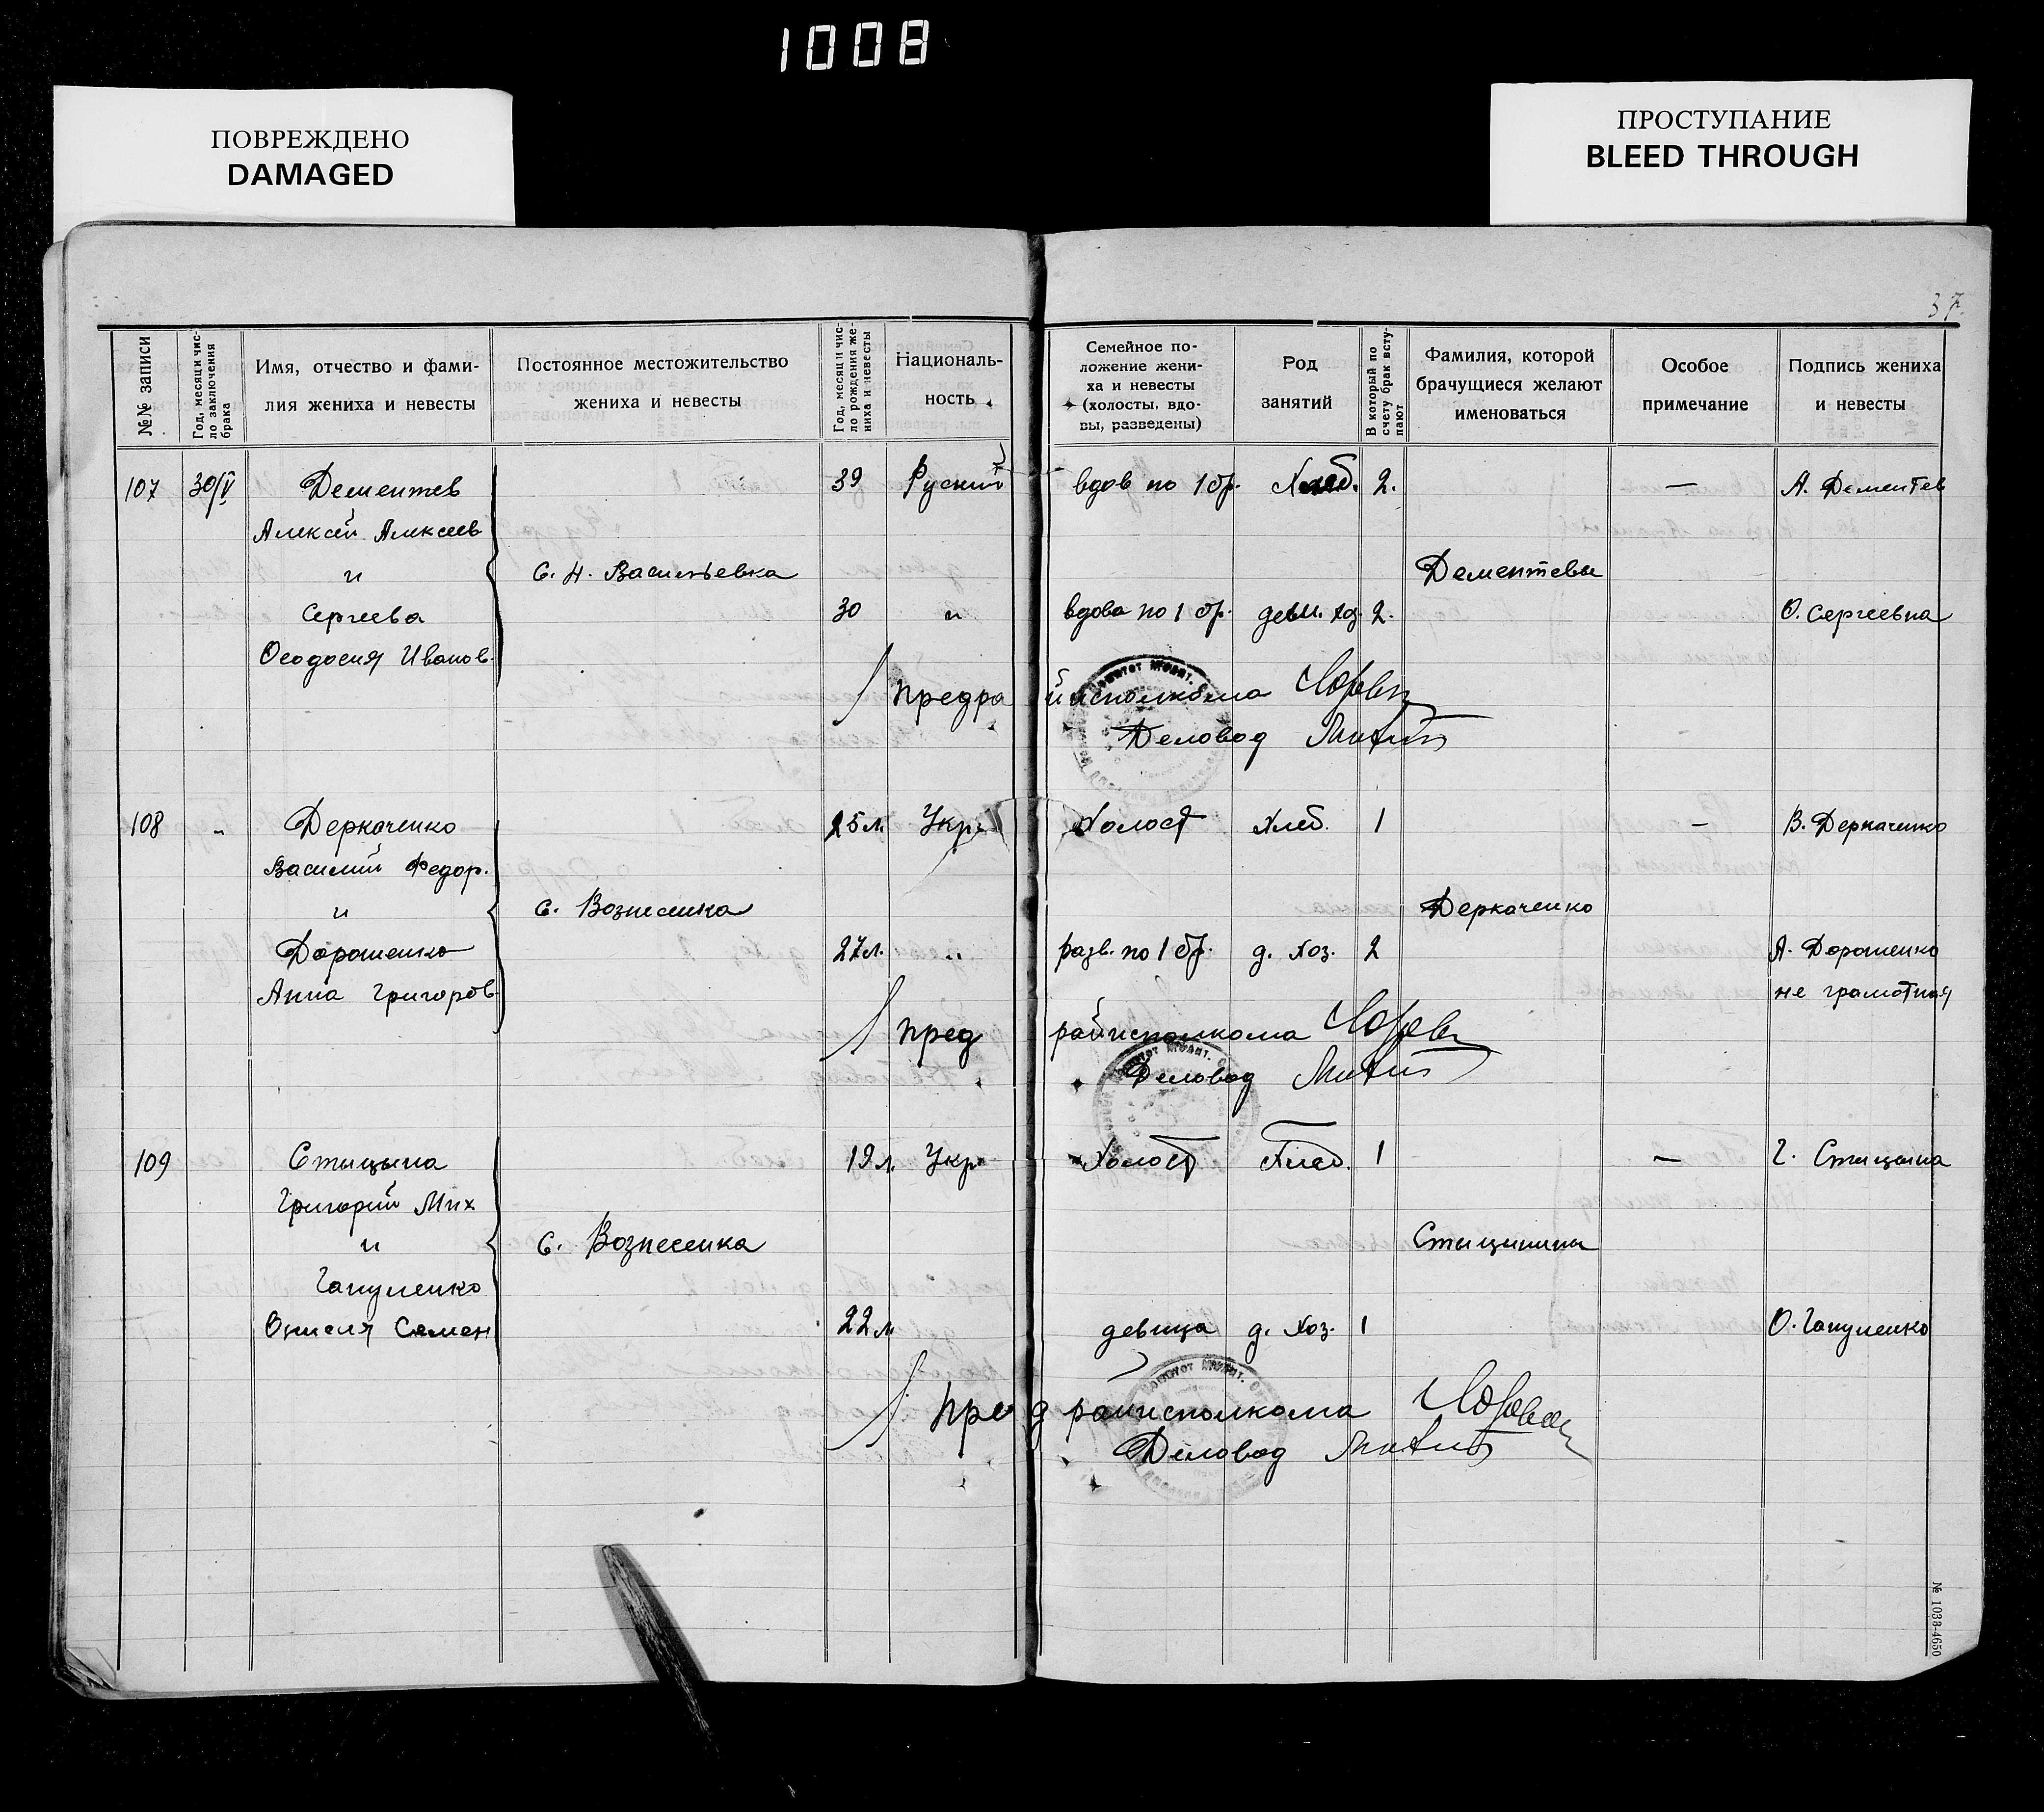 1008
ПОВРЕЖДЕНО
DAMAGED
ПРОСТУПАНИЕ
BLEED THROUGH
37.
№№ записи
Год, месяц и чис-
ло заключения
брака
Имя, отчество и фами-
лия жениха и невесты
Постоянное местожительство
жениха и невесты
Год, месяц и чис-
ло рождения же-
ниха и невесты
Националь-
ность
Семейное по-
ложение жени-
ха и невесты
(холосты, вдо-
вы, разведены)
Род
занятий
В который по
счету брак всту-
пают
Фамилия, которой
брачущиеся желают
именоваться
Особое
примечание
Подпись жениха
и невесты
107 30/V Дементев 39 Руский вдов по 1 бр. Хлеб. 2. — А. Дементев
Алексей Алексеев
и с. Н. Васильевка Дементевы
Сергеева 30 " вдова по 1 бр. 2. О. Сергеевна
Феодосия Иванов.
Предрайисполкома
Деловод
108 " Деркаченко 25 л. Укр. Холост Хлеб. 1 — В. Деркаченко
Василий Федор.
и с. Вознесенка Деркаченко
Дорошенко 27 л. " разв. по 1 бр. д. хоз. 2 А. Дорошенко
Анна Григоров. не грамотная
Пред райисполкома
Деловод
109 Стыцына 19 л. Укр. Холост Хлеб. 1 — Г. Стыцына
Григорий Мих
и с. Вознесенка Стыцынины
Гапуленко
Оксения Семен 22 л девица д. хоз. 1 О. Гапуленко
Пред райисполкома
Деловод
№ 1033-4650